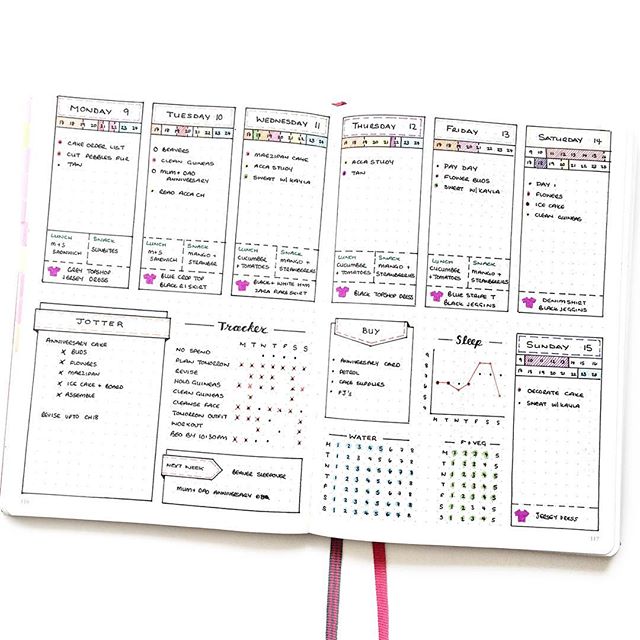 MONDAY 9
17 18 19 20 21 22 23 24
CAKE ORDER LIST
CUT PEBBLES FUR
TAN
LUNCH
M+S
SANDWICH
SNACK
SUNBITES
GREY TOPSHOP
JERSEY DRESS
TUESDAY 10
17 18 19 20 21 22 23 24
BEAVERS
CLEAN GUINEAS
MUM + DAD
ANNIVERSARY
READ ACCA CH
LUNCH
M+S
SANDWICH
SNACK
MANGO +
STRAWBER
BLUE CROP TOP
BLACK RI SKIRT
WEDNESDAY 11
17 18 19 20 21 22 23 24
MARZIPAN CAKE
ACCA STUDY
SWEAT W/ KAYLA
LUNCH
CUCUMBER
+ TOMATOES
SNACK
MANGO +
STRAWBERRIES
BLACK + WHITE H+M
ZARA FAUX SKIRT
THURSDAY 12
17 18 19 20 21 22 23 24
ACCA STUDY
TAN
LUNCH
CUCUMBER
+ TOMATOES
SNACK
MANGO +
STRAWBERRIES
BLACK TOPSHOP DRESS
FRIDAY 13
17 18 19 20 21 22 23 24
PAY DAY
FLOWER BUDS
SWEAT W/ KAYLA
LUNCH
CUCUMBER
+ TOMATOES
SNACK
MANGO +
STRAWBERRIES
BLUE STRIPE T
BLACK JEGGINS
SATURDAY 14
9 10 11 12 13 14 15 16
17 18 19 20 21 22 23 24
DAY 1
FLOWERS
ICE CAKE
CLEAN GUINEAS
DENIM SHIRT
BLACK JEGGINS
JOTTER
ANNIVERSARY CAKE
x BUDS
x FLOWERS
x MARZIPAN
x ICE CAKE + BOARD
x ASSEMBLE
REVISE UPTO CH18
Tracker
M T W T F S S
NO SPEND
PLAN TOMORROW
REVISE
HOLD GUINEAS
CLEAN GUINEAS
CLEANSE FACE
TOMORROW OUTFIT
WORKOUT
BED BY 10:30PM
NEXT WEEK
BEAVER SLEEPOVER
MUM + DAD ANNIVERSARY
BUY
ANNIVERSARY CARD
PETROL
CAKE SUPPLIES
PJ'S
Sleep
9
8
7
6
5
4
M T W T F S S
WATER
M 1 2 3 4 5 6 7 8
T 1 2 3 4 5 6 7 8
W 1 2 3 4 5 6 7 8
T 1 2 3 4 5 6 7 8
F 1 2 3 4 5 6 7 8
S 1 2 3 4 5 6 7 8
S 1 2 3 4 5 6 7 8
F + VEG
M 1 2 3 4 5
T 1 2 3 4 5
W 1 2 3 4 5
T 1 2 3 4 5
F 1 2 3 4 5
S 1 2 3 4 5
S 1 2 3 4 5
SUNDAY 15
9 10 11 12 13 14 15 16
17 18 19 20 21 22 23 24
DECORATE CAKE
SWEAT W/ KAYLA
JERSEY DRESS
116
117